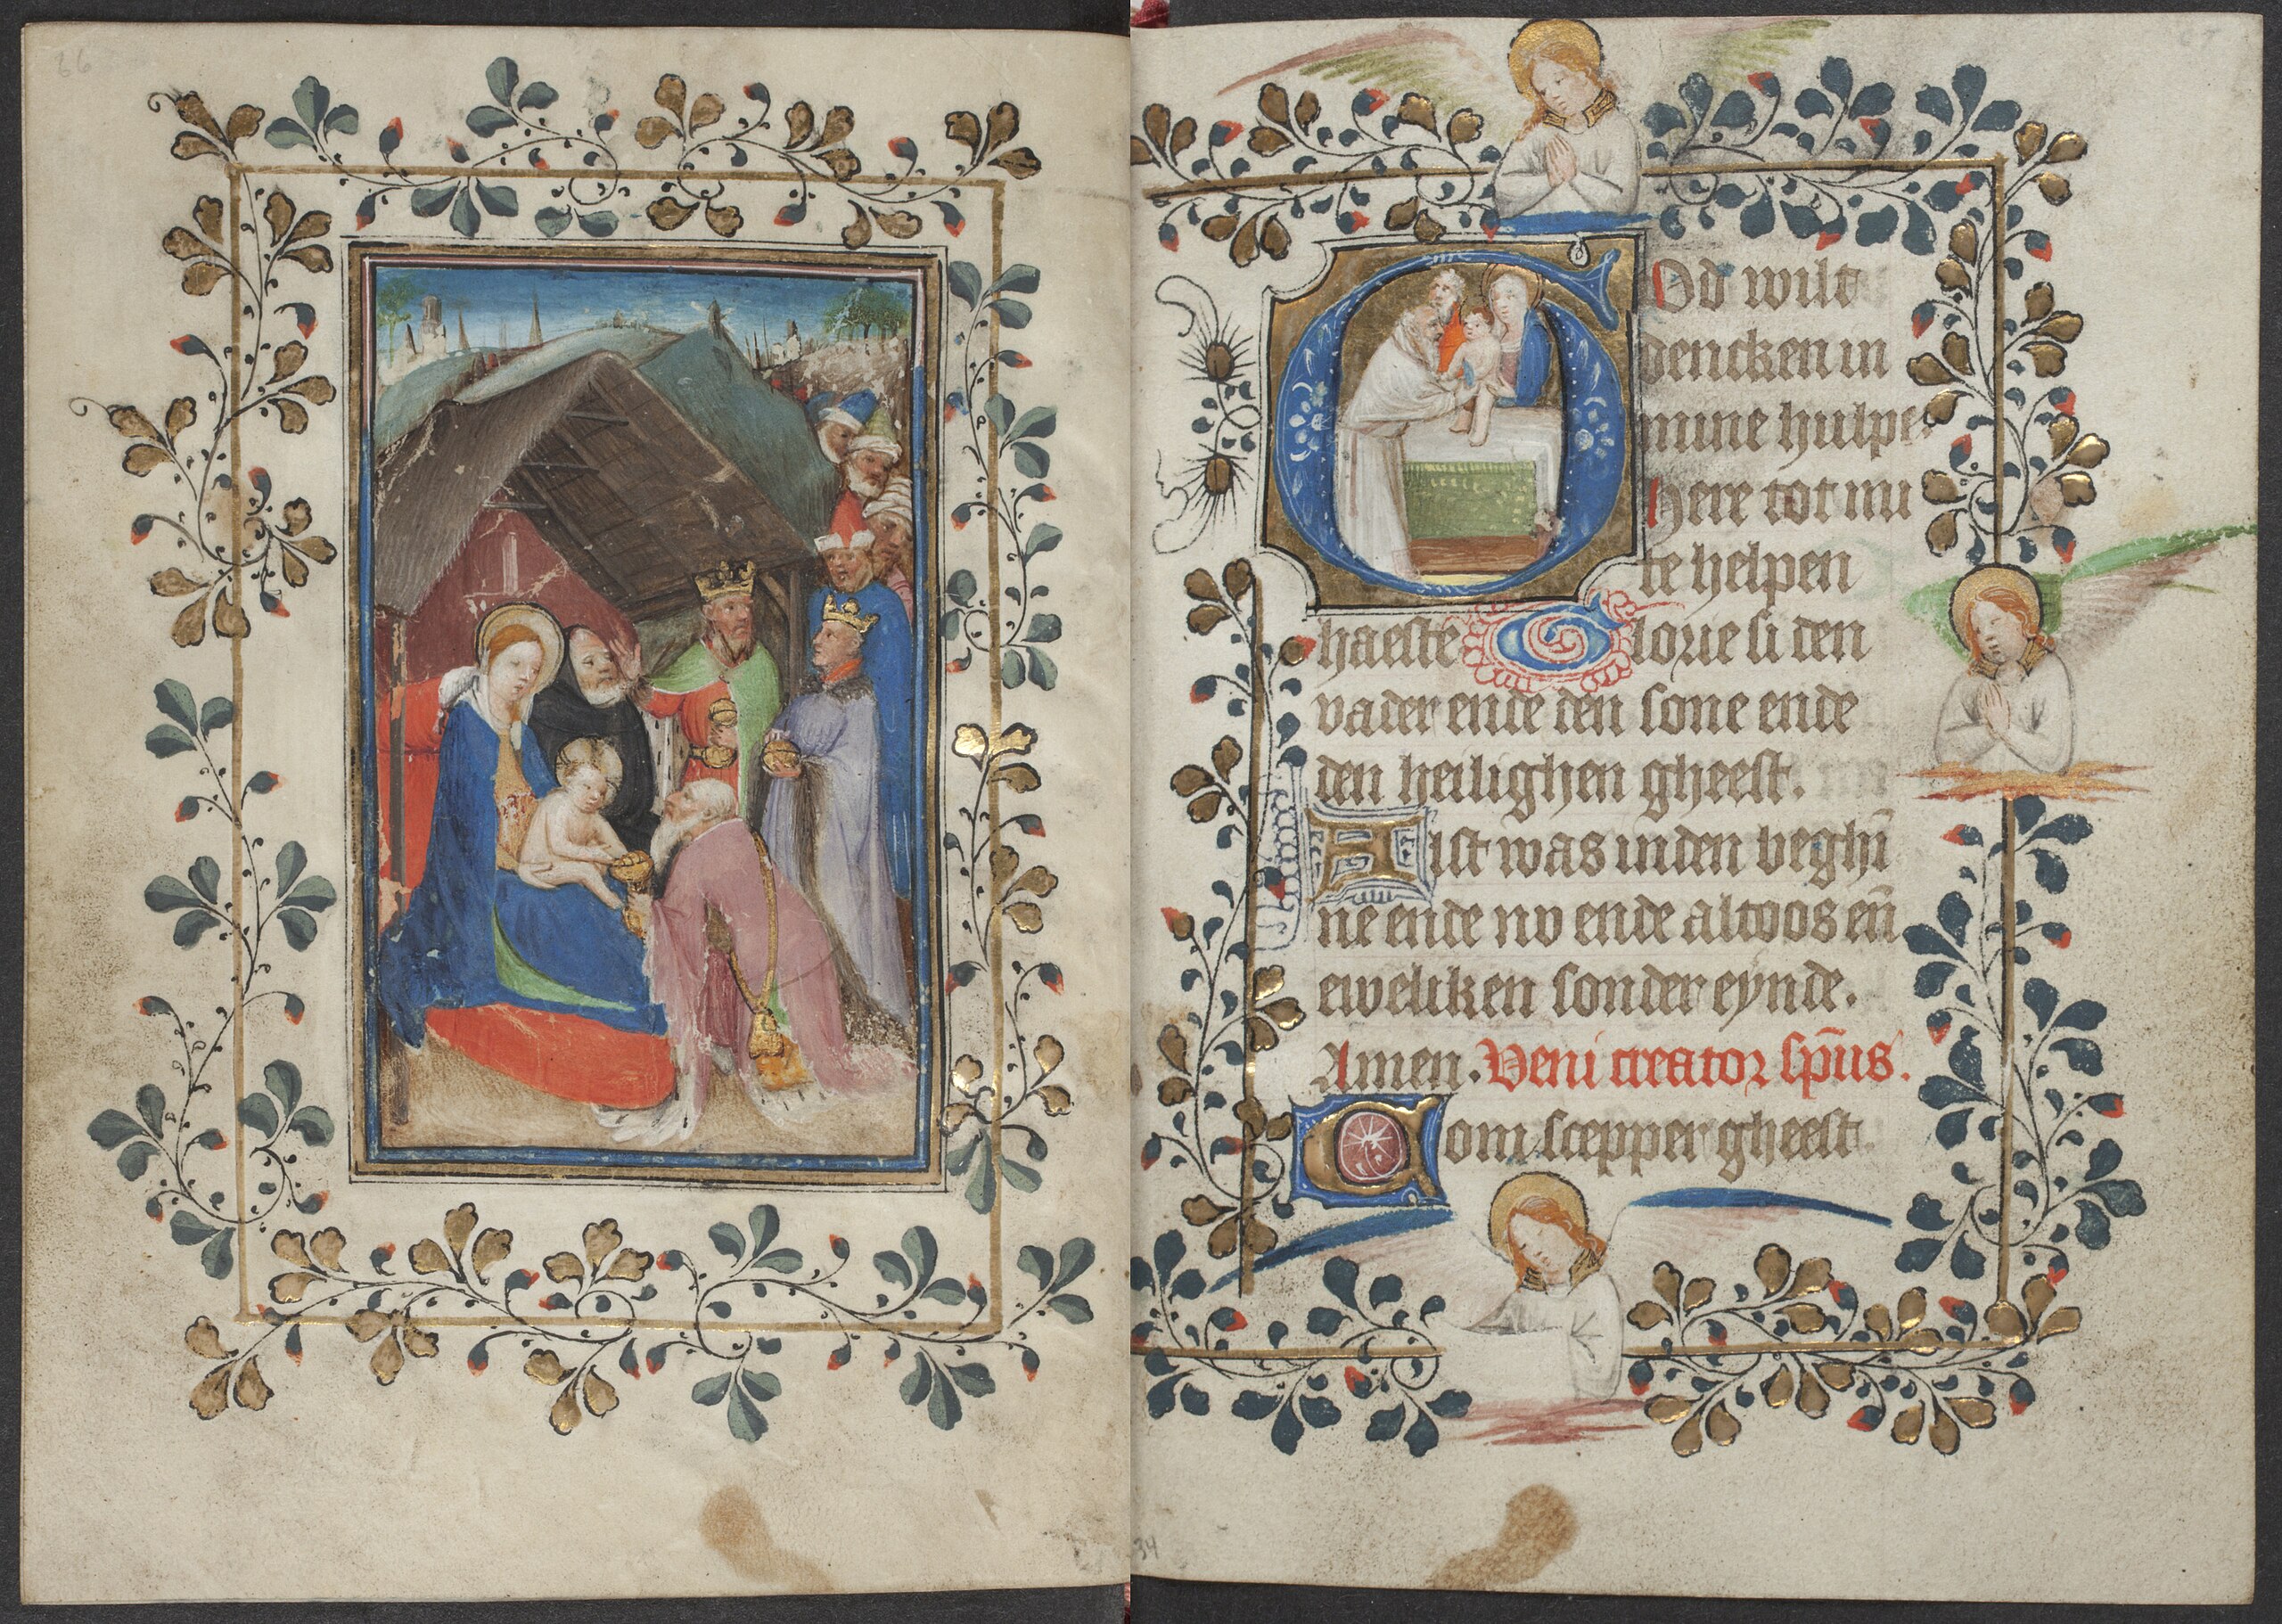 66
God wilt
dencken in
mine hulpe
here tot mi
te helpen
haeste Glorie si den
vader ende den sone ende
den heilighen gheest.
Alst was inden beghī
ne ende nv ende altoos en̄
eweliken sonder eynde.
Amen. Veni creator sp̄us.
Com scepper gheest
34